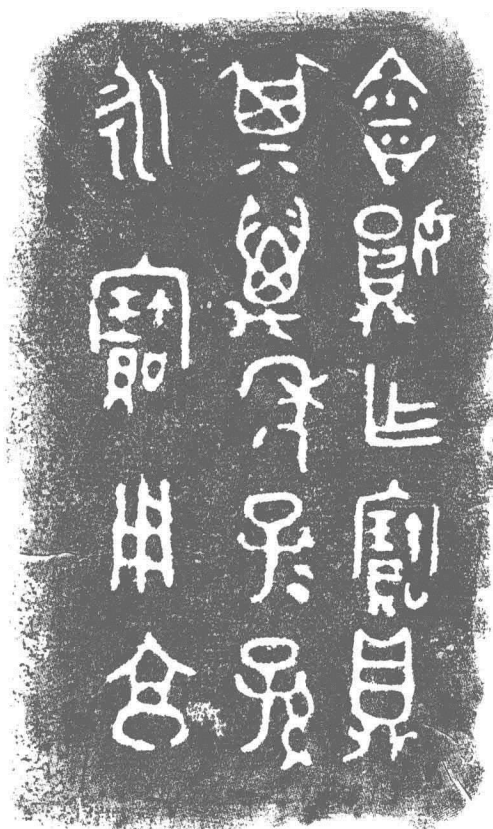 會妘作寶鼎
其萬年子=孫
永寶用享